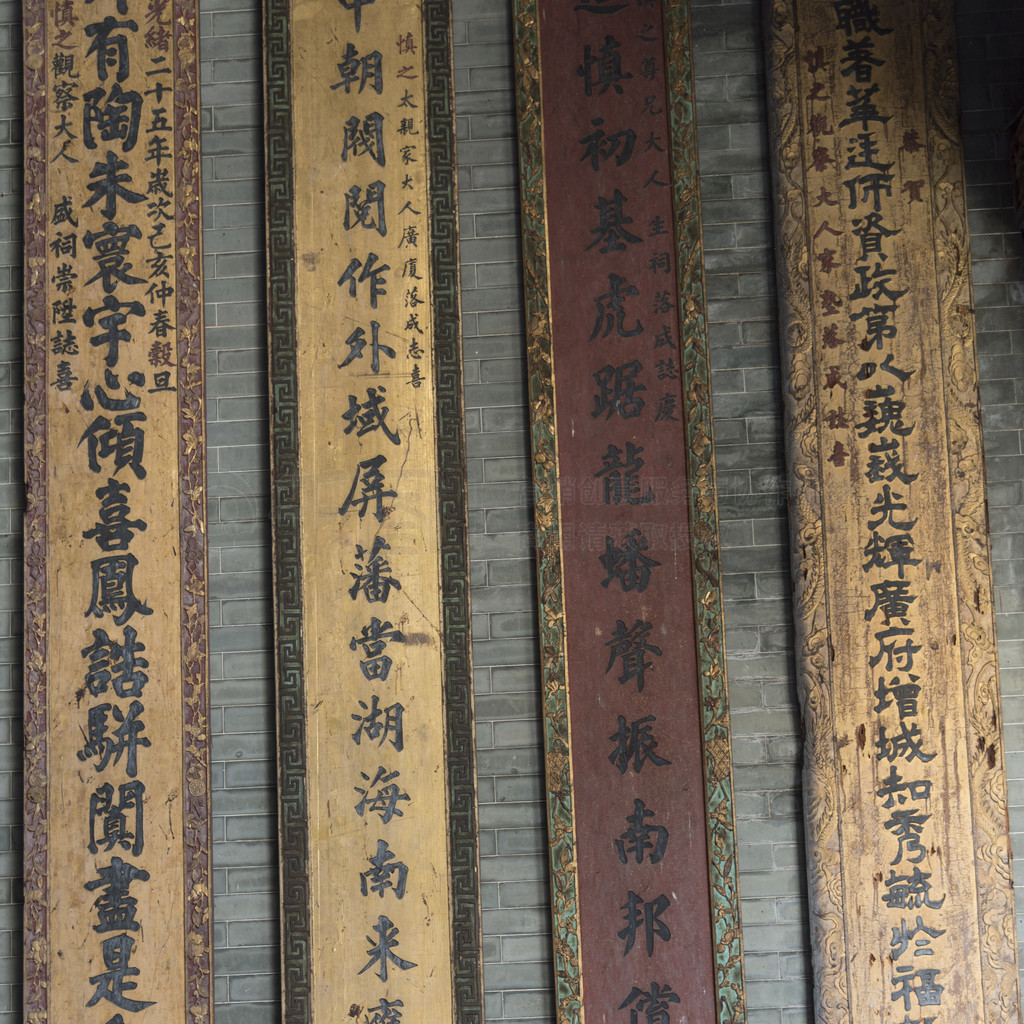 恭賀
職著華迋師資政第人巍峩光輝廣府增城知秀毓於福
慎之觀察大人家塾落成誌喜
慎之尊兄大人生祠落成誌慶
慎初基虎踞龍蟠聲振南邦償
慎之太親家大人廣廈落成志喜
中朝閥閱作外域屏藩當湖海南來
光緒二十五年歲次己亥仲春穀旦
有陶朱寰宇心傾喜鳳誥駢闐盡是
慎之觀察大人盛祠崇陞誌喜